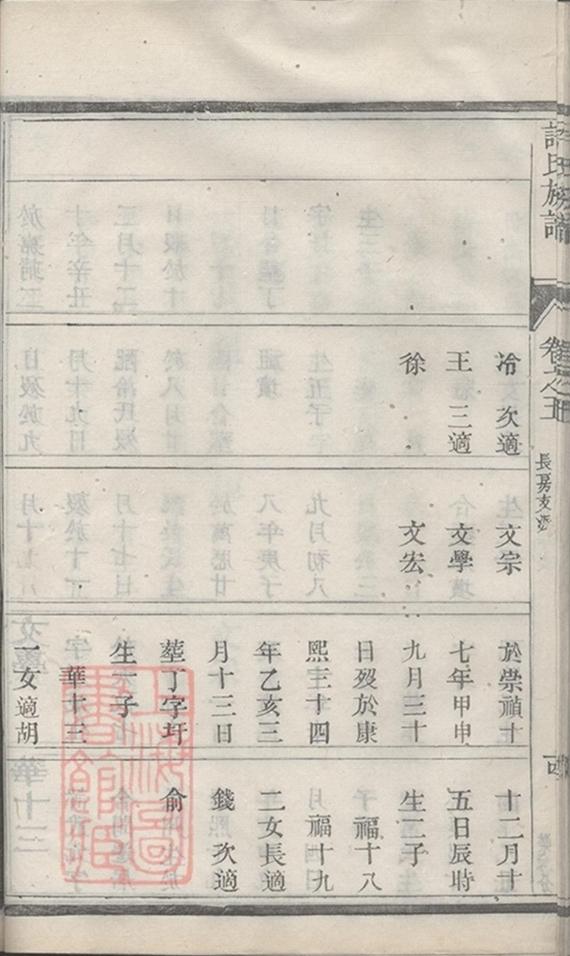 許氏族譜
卷之五
長房支派
冷 次適
王 三適
徐
文宗
文學
文宏
於崇禎十
七年甲申
九月三十
日歿於康
熙三十四
年乙亥三
月十三日
塟丁字圩
生一子
華十三
一女適胡
十二月十
五日辰時
生二子
福十八
福十九
二女長適
錢 次適
俞
上海圖
書館藏